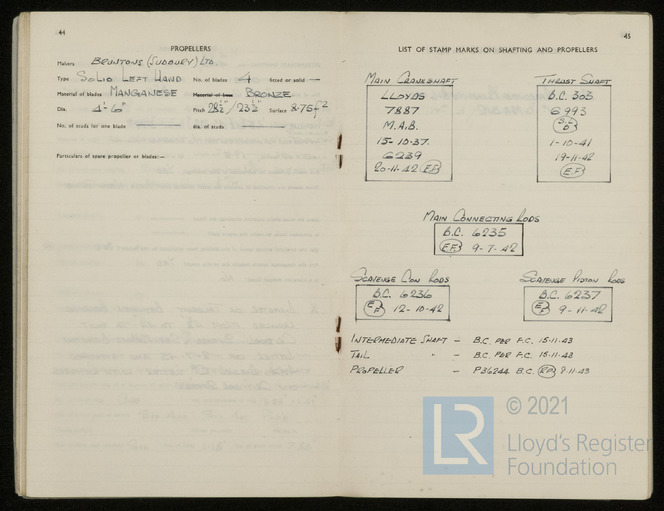 44
PROPELLERS
Makers BRUNTONS (SUDBURY) LTD.
Type SOLID LEFT HAND No. of blades 4 fitted or solid —
Material of blades MANGANESE Material of boss BRONZE
Dia. 4'-6" Pitch 28½"/23½" Surface 8.75 F2
No. of studs for one blade dia. of studs
Particulars of spare propeller or blades:—
45
LIST OF STAMP MARKS ON SHAFTING AND PROPELLERS
MAIN CRANKSHAFT
LLOYDS
7887
M.A.B.
15-10-37.
6239
20-11-42 EF
THRUST SHAFT
B.C. 303
6993
1-10-41
19-11-42
EF
MAIN CONNECTING RODS
B.C. 6235
EF 9-7-42
SCAVENGE CON RODS
B.C. 6236
EF 12-10-42
SCAVENGE PISTON RODS
B.C. 6237
EF 9-11-42
INTERMEDIATE SHAFT — B.C. PER F.C. 15-11-43
TAIL " — B.C. PER F.C. 15-11-43
PROPELLER — P36244 B.C. 8-11-43
LR
© 2021
Lloyd's Register
Foundation